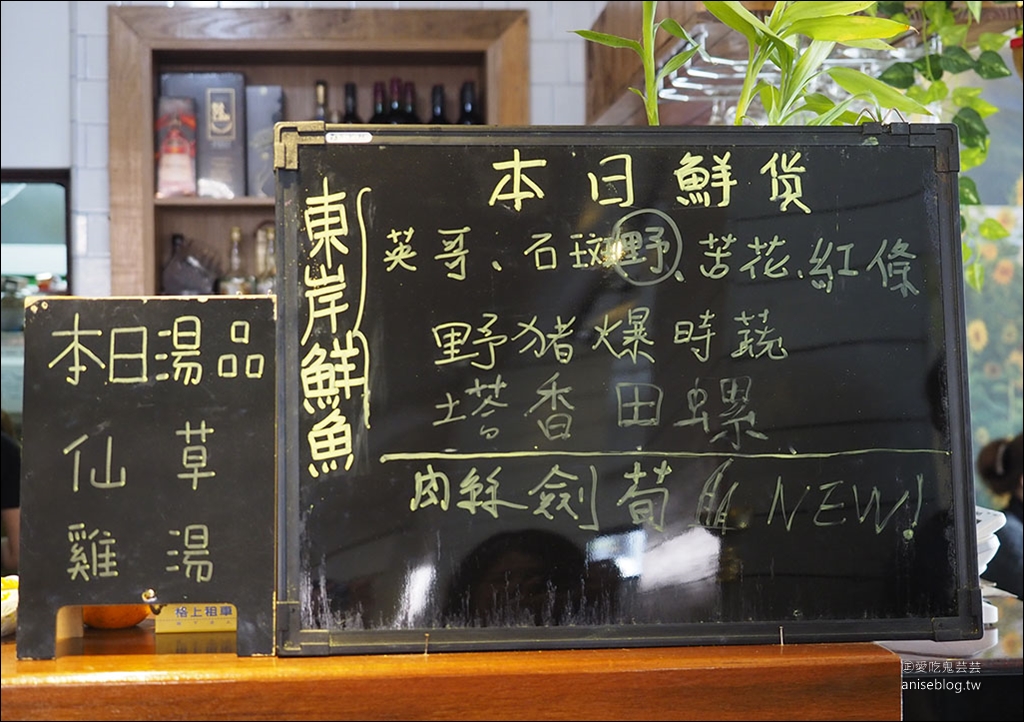 本日湯品
仙草
雞湯
東岸鮮魚
本日鮮貨
英哥、石斑野、苦花、紅條
野豬爆時蔬
塔香田螺
肉絲劍荀 NEW!
格上租車
愛吃鬼芸芸
aniseblog.tw